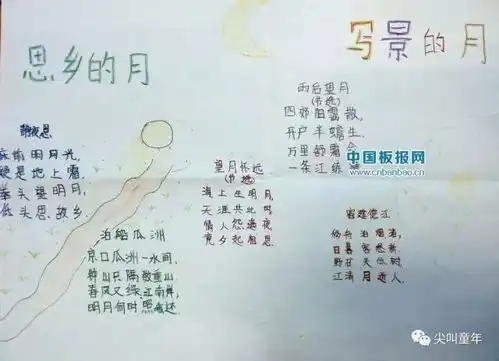 思乡的月
写景的月
静夜思
床前明月光,
疑是地上霜,
举头望明月,
低头思故乡.
泊船瓜洲
京口瓜洲一水间,
钟山只隔数重山,
春风又绿江南岸,
明月何时照我还
望月怀远
(节选)
海上生明月,
天涯共此时
情人怨遥夜
竟夕起相思
雨后望月
(节选)
四郊阴霭散,
开户半蟾生.
万里舒霜合
一条江练
中国板报网
www.cnbanbao.cn
宿建德江
移舟泊烟渚,
日暮客愁新
野旷天低树
江清月近人.
尖叫童年